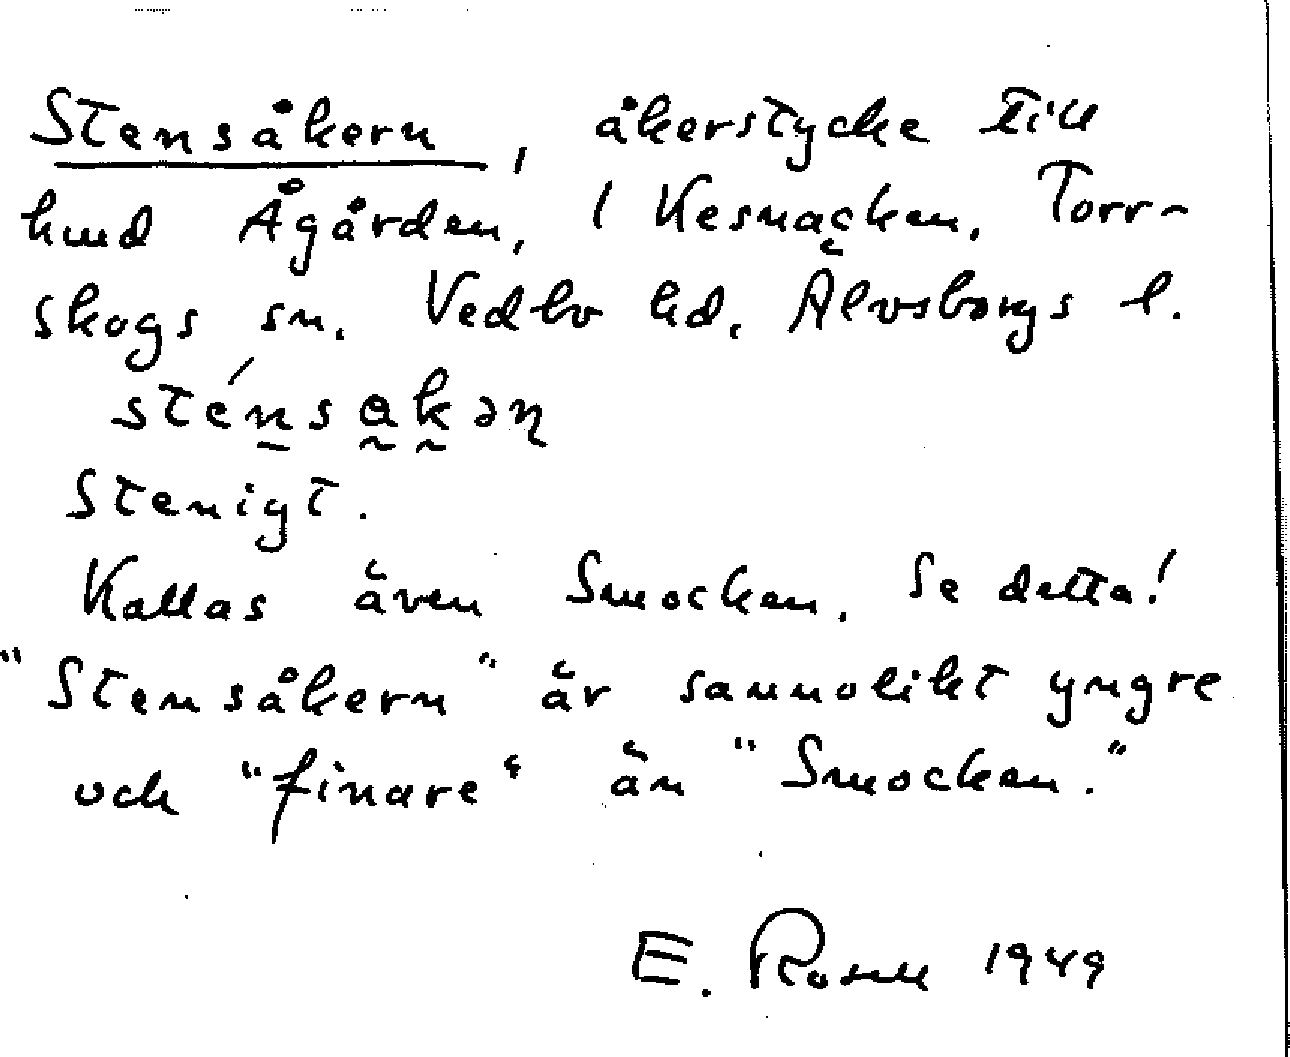 Stensåkern, åkerstycke till
hmd Ågården, 1 Kesnacken, Torr-
skogs sn. Vedbo hd. Älvsborgs l.
sténsa̰k̰ən̥
Stenigt.
Kallas även Smocken. Se detta!
"Stensåkern" är sannolikt yngre
och "finare" än "Smocken."
E. Rosell 1949